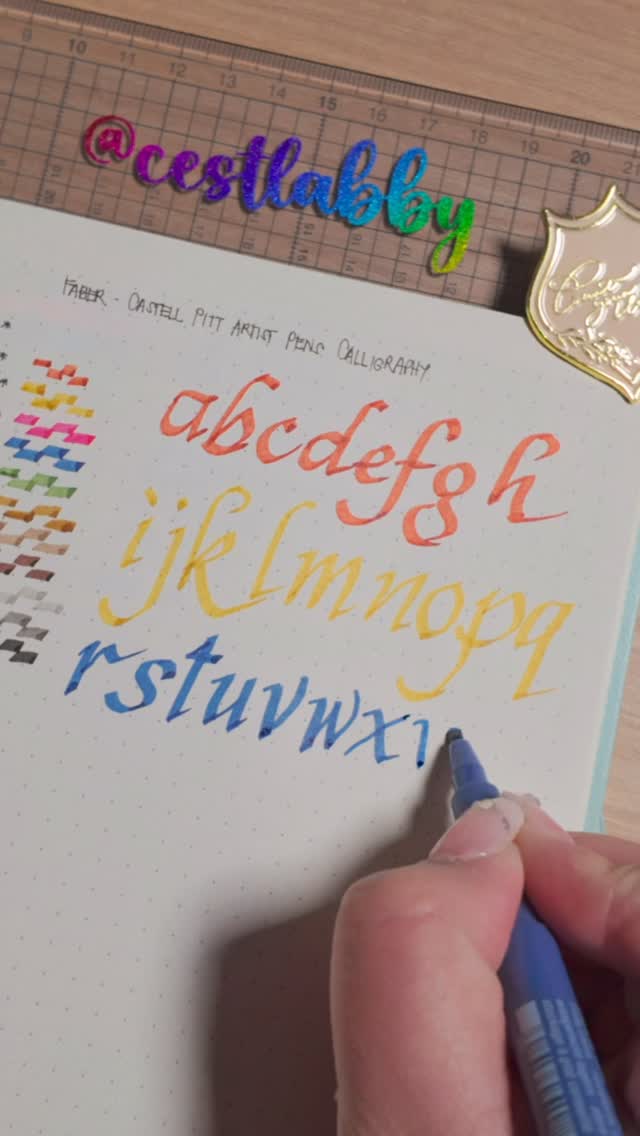 9 10 11 12 13 14 15 16 17 18 19 20
@cestlabby
FABER - CASTELL PITT ARTIST PENS CALLIGRAPHY
abcdefgh
ijklmnopq
rstuvwx